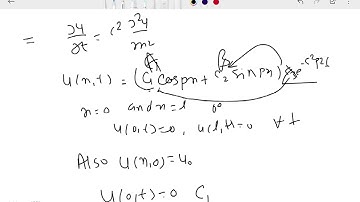 = ∂u/∂t = c² ∂²u/∂x²
u(x,t) = (C₁ cos px + C₂ sin px) e^-c²p²t
A B
x=0 and x=l
u(0,t)=0, u(l,t)=0 ∀ t
Also u(x,0)=u₀
u(0,t)=0 C₁